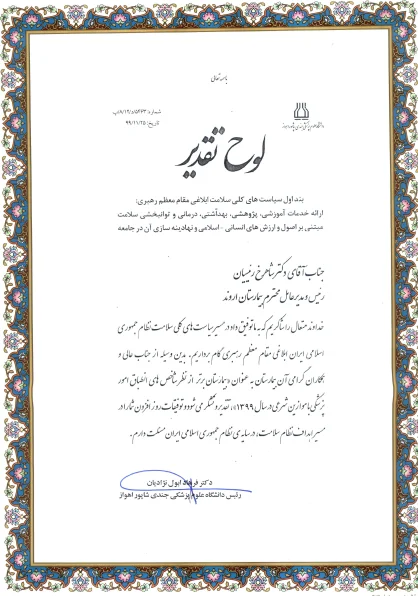 باسمه تعالی
شماره: ۱۸/۱۲/د/۵۴۶۳/پ
تاریخ: ۹۹/۱۱/۲۵
لوح تقدیر
بند اول سیاست های کلی سلامت ابلاغی مقام معظم رهبری:
ارائه خدمات آموزشی، پژوهشی، بهداشتی، درمانی و توانبخشی سلامت
مبتنی بر اصول و ارزش های انسانی - اسلامی و نهادینه سازی آن در جامعه
جناب آقای دکتر شاهرخ رئیسیان
رئیس و مدیرعامل محترم بیمارستان اروند
خداوند متعال را شاکریم که به ما توفیق داد در مسیر سیاست های کلی سلامت نظام جمهوری
اسلامی ایران ابلاغی مقام معظم رهبری گام برداریم. بدین وسیله از جناب عالی و
همکاران گرامی آن بیمارستان به عنوان «بیمارستان برتر از نظر شاخص های انطباق امور
پزشکی با موازین شرعی در سال ۱۳۹۹»، تقدیر و تشکر می شود و توفیقات روز افزون شما را در
مسیر اهداف نظام سلامت، در سایه ی نظام جمهوری اسلامی ایران مسئلت دارم.
دکتر فرهاد ابول نژادیان
رئیس دانشگاه علوم پزشکی جندی شاپور اهواز